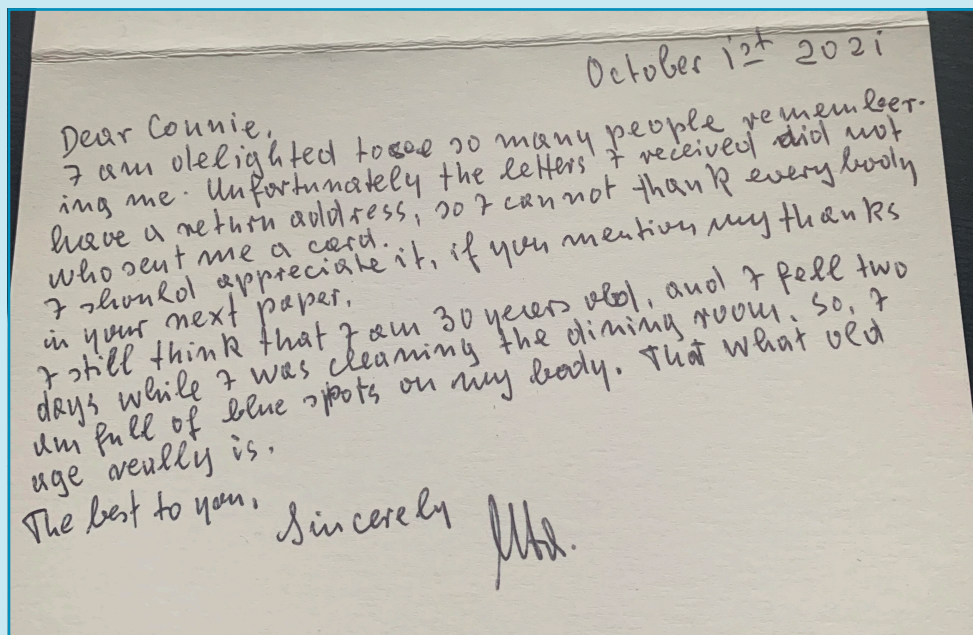 October 1st 2021
Dear Connie,
I am delighted to see so many people remember-
ing me. Unfortunately the letters I received did not
have a return address, so I cannot thank everybody
who sent me a card.
I should appreciate it, if you mention my thanks
in your next paper.
I still think that I am 30 years old, and I fell two
days while I was cleaning the dining room. So, I
am full of blue spots on my body. That what old
age really is.
The best to you.
Sincerely